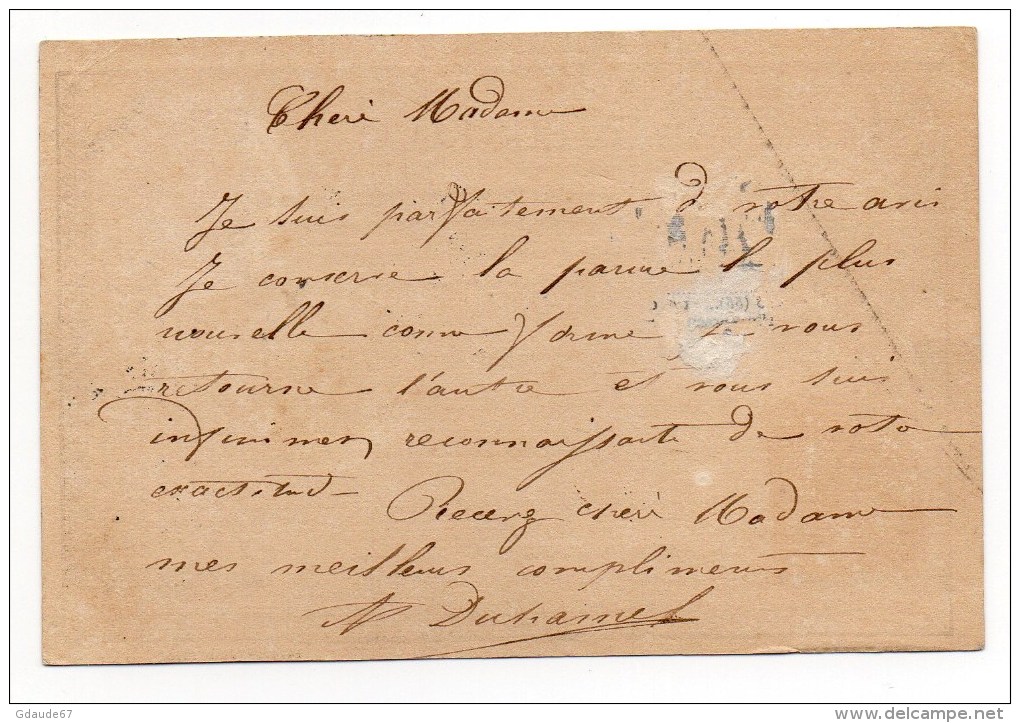 Cheré Madame
Je suis parfaitement d votre avis
Je conserve la parure la plus
nouvelle comme forme, je vous
retourne l'autre et vous suis
infiniment reconnaissante de votre
exactitude –
Recevez cheré Madame
mes meilleurs compliments
Duhamel
Gdaude67
www.delcampe.net